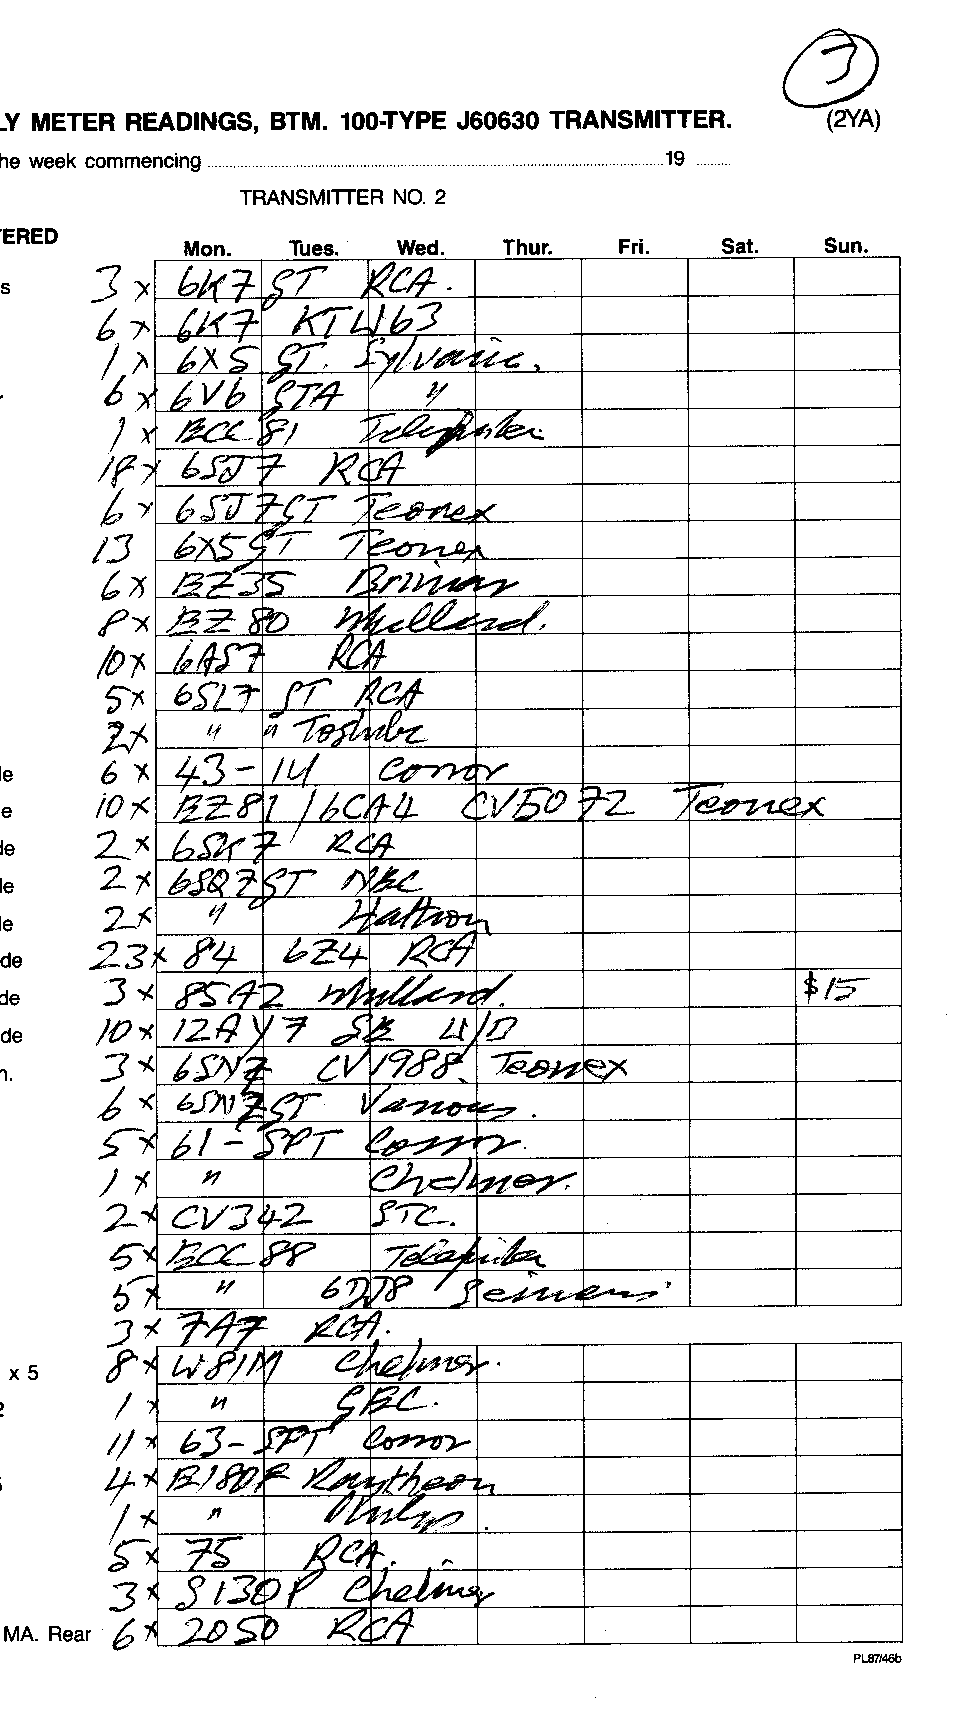 3
LY METER READINGS, BTM. 100-TYPE J60630 TRANSMITTER. (2YA)
he week commencing 19
TRANSMITTER NO. 2
TERED
Mon. Tues. Wed. Thur. Fri. Sat. Sun.
s 3 x 6K7 GT RCA.
6 x 6K7 KTW63
1 x 6X5 GT. Sylvania.
6 x 6V6 GTA "
1 x ECC 81 Telefunken
18 x 6SJ7 RCA
6 x 6SJ7GT Teonex
13 6X5GT Teonex
6 x EZ35 Brimar
8 x EZ 80 Mullard.
10 x 6AS7 RCA
5 x 6SL7 GT RCA
2 x " " Toshiba
de 6 x 43-IU Cossor
e 10 x EZ81 / 6CA4 CV5072 Teonex
de 2 x 6SK7 RCA
le 2 x 6SQ7GT NEC
le 2 x " Haltron
de 23 x 84 6Z4 RCA
de 3 x 85A2 Mullard. $15
de 10 x 12AY7 GE U/D
n. 3 x 6SN7 CV1988. Teonex
6 x 6SN7GT Various.
5 x 61-SPT Cossor.
1 x " Chelmer.
2 x CV342 STC.
5 x ECC 88 Telefunken
5 x " 6DJ8 Seimens
3 x 7A7 RCA.
x 5 8 x W81M Chelmer.
2 1 x " GEC.
11 x 63-SPT Cossor
4 x E180F Raytheon
1 x " Philips.
5 x 75 RCA.
3 x S130P Chelmer
MA. Rear 6 x 2050 RCA
PL87/46b